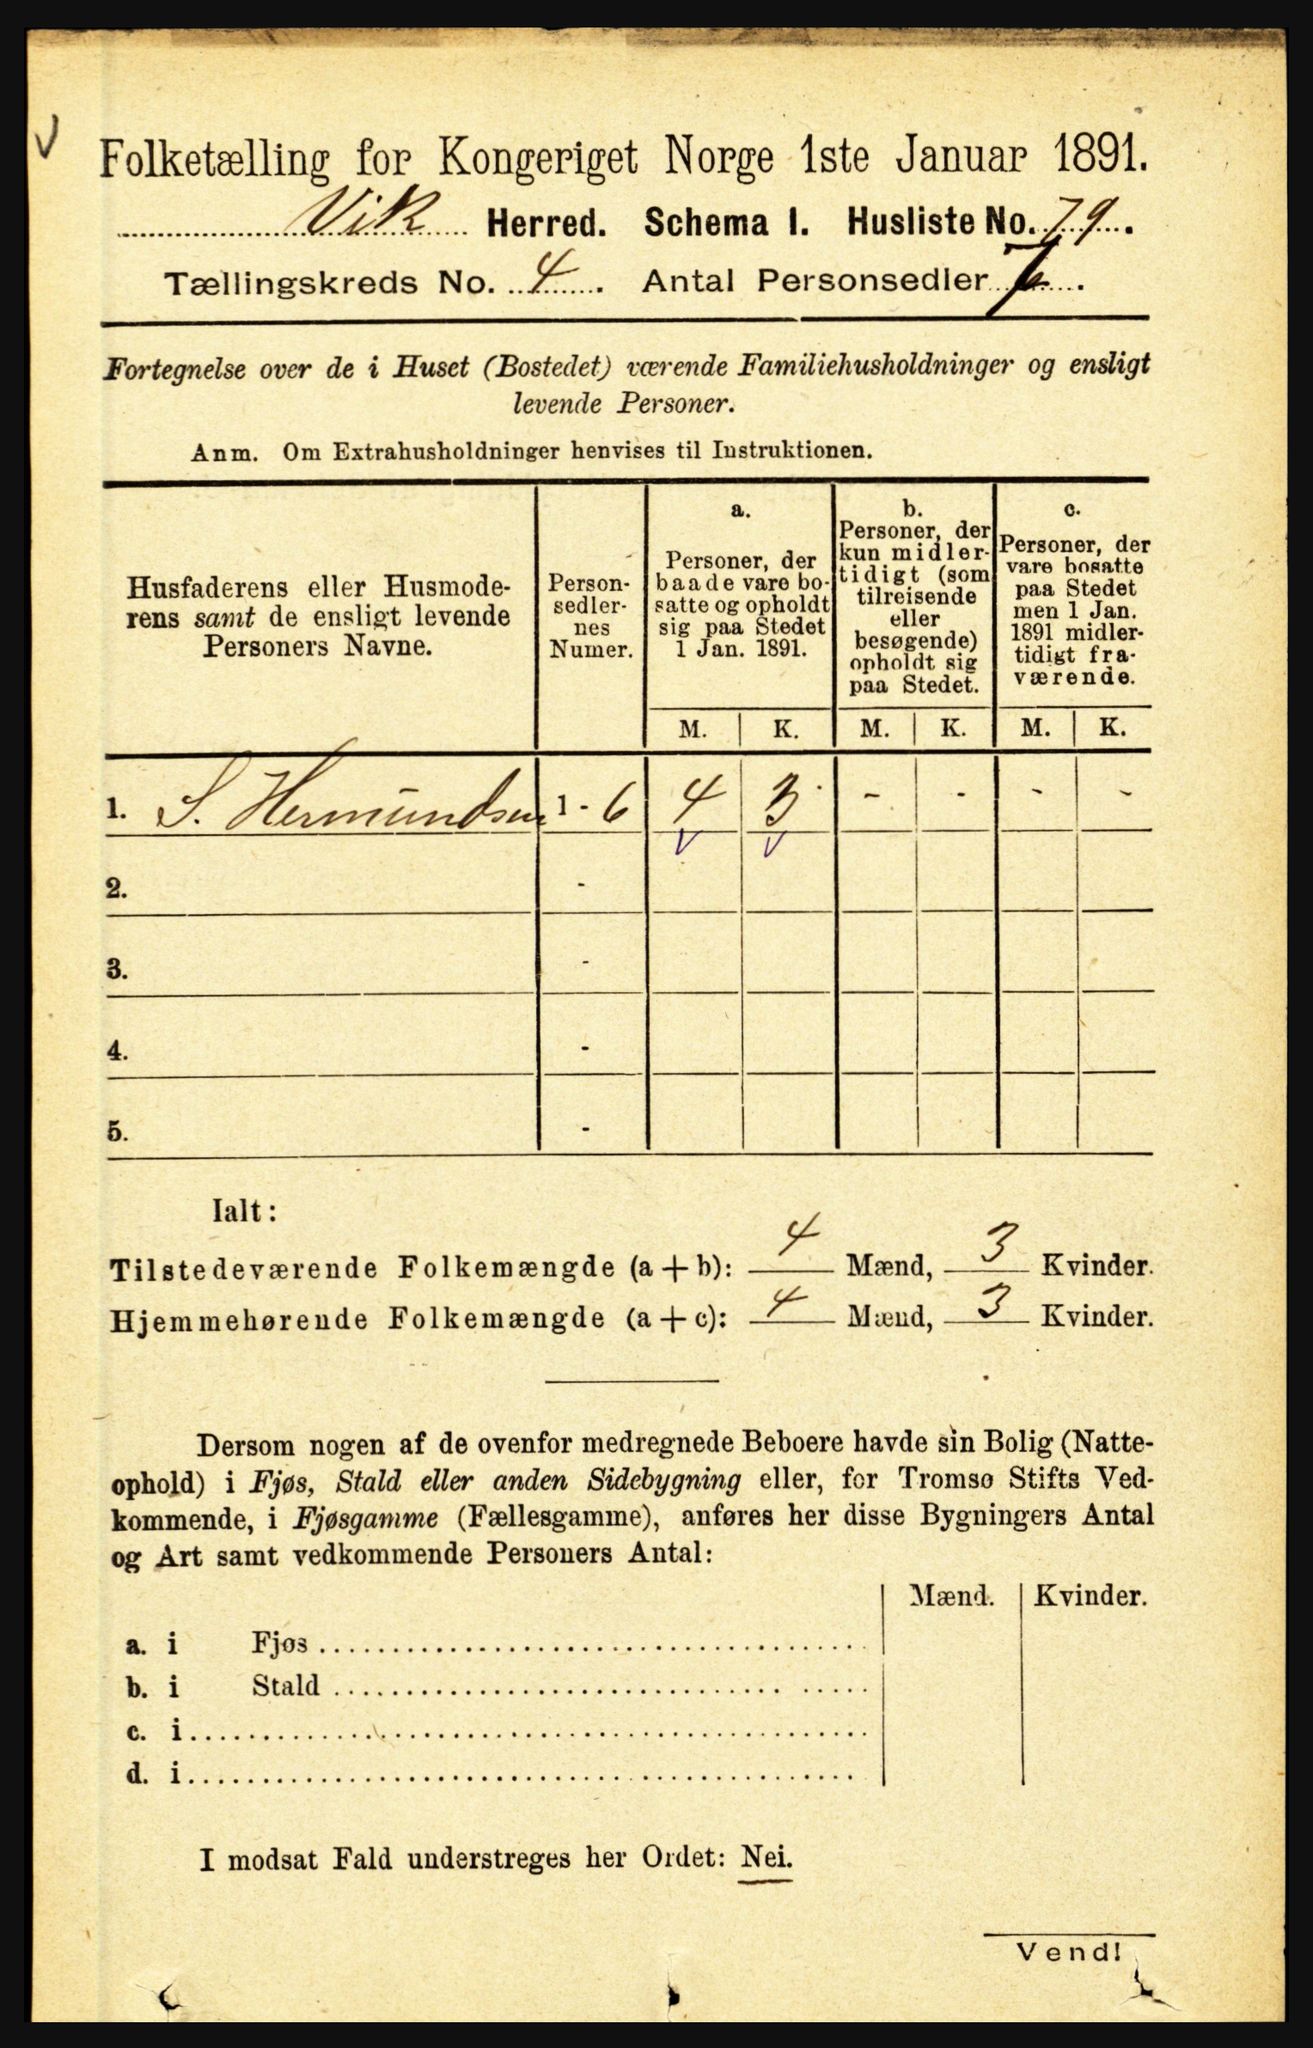 V
Folketælling for Kongeriget Norge 1ste Januar 1891.
Vik Herred. Schema I. Husliste No. 79.
Tællingskreds No. 4. Antal Personsedler 7.
Fortegnelse over de i Huset (Bostedet) værende Familiehusholdninger og ensligt
levende Personer.
Anm. Om Extrahusholdninger henvises til Instruktionen.
Husfaderens eller Husmode-
rens samt de ensligt levende
Personers Navne.
Person-
sedler-
nes
Numer.
a.
Personer, der
baade vare bo-
satte og opholdt
sig paa Stedet
1 Jan. 1891.
b.
Personer, der
kun midler-
tidigt (som
tilreisende
eller
besøgende)
opholdt sig
paa Stedet.
c.
Personer, der
vare bosatte
paa Stedet
men 1 Jan.
1891 midler-
tidigt fra-
værende.
M. K. M. K. M. K.
1. S. Hermundsen 1 - 6 4 3 - - - -
V V
2. -
3. -
4. -
5. -
Ialt:
Tilstedeværende Folkemængde (a + b): 4 Mænd, 3 Kvinder.
Hjemmehørende Folkemængde (a + c): 4 Mænd, 3 Kvinder.
Dersom nogen af de ovenfor medregnede Beboere havde sin Bolig (Natte-
ophold) i Fjøs, Stald eller anden Sidebygning eller, for Tromsø Stifts Ved-
kommende, i Fjøsgamme (Fællesgamme), anføres her disse Bygningers Antal
og Art samt vedkommende Personers Antal:
Mænd. Kvinder.
a. i Fjøs
b. i Stald
c. i
d. i
I modsat Fald understreges her Ordet: Nei.
Vend!